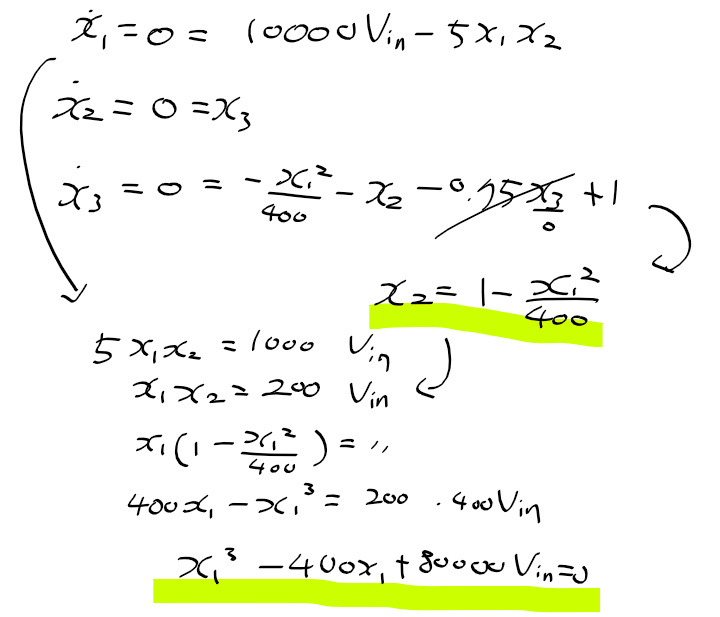 ẋ₁ = 0 = 10000 Vᵢₙ − 5x₁x₂
ẋ₂ = 0 = x₃
ẋ₃ = 0 = −x₁²/400 − x₂ − 0.75x₃ + 1
0
x₂ = 1 − x₁²/400
5x₁x₂ = 1000 Vᵢₙ
x₁x₂ = 200 Vᵢₙ
x₁(1 − x₁²/400) = 〃
400x₁ − x₁³ = 200 . 400Vᵢₙ
x₁³ − 400x₁ + 80000 Vᵢₙ = 0